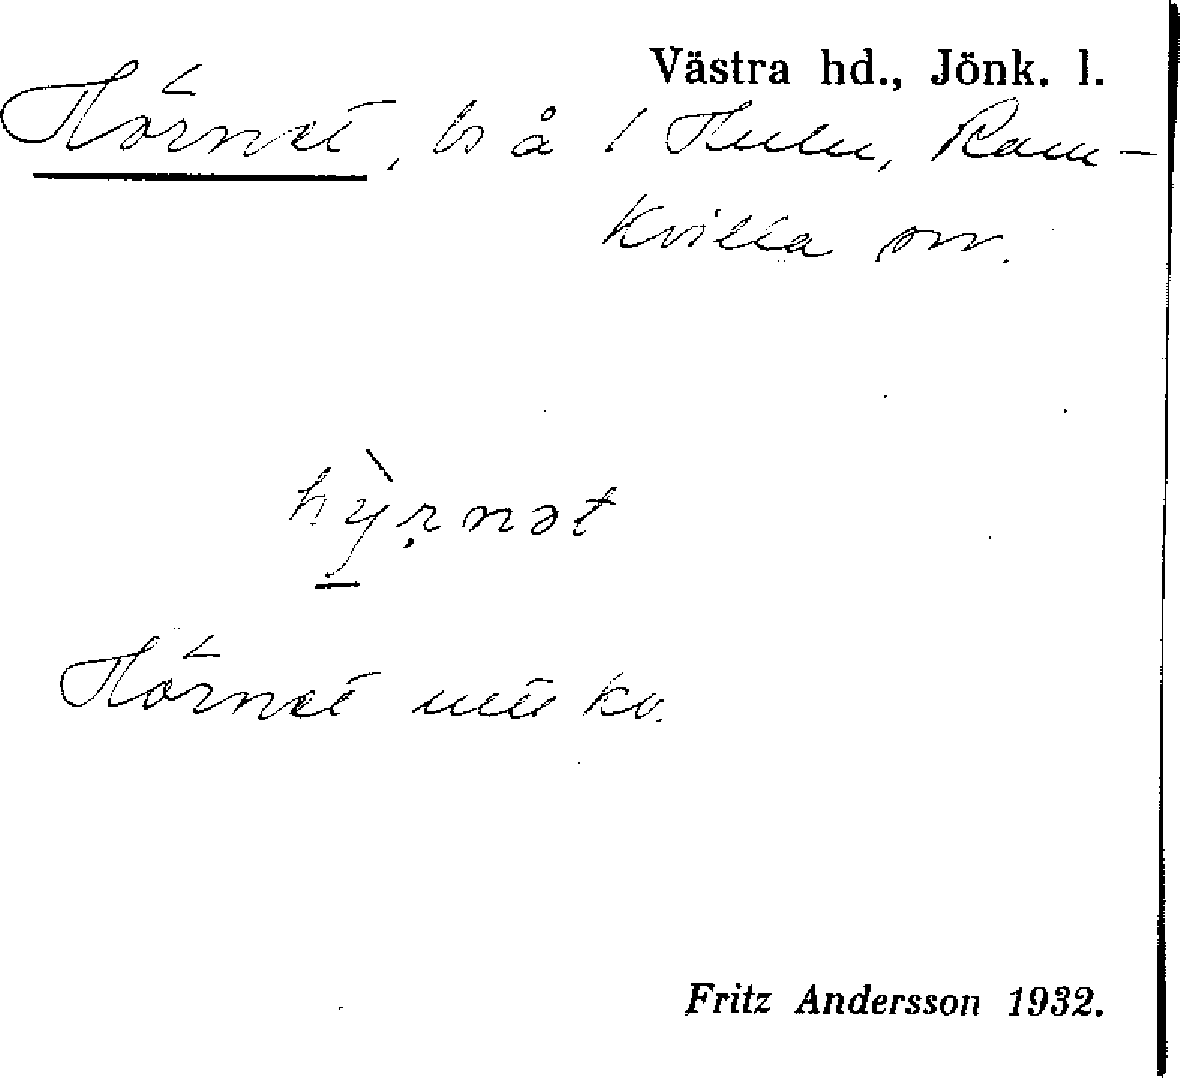 Västra hd., Jönk. l.
Hörnet, ls å 1 Hulu, Ram-
kvilla sn.
hỳrnət
Hörnet utte kv.
Fritz Andersson 1932.